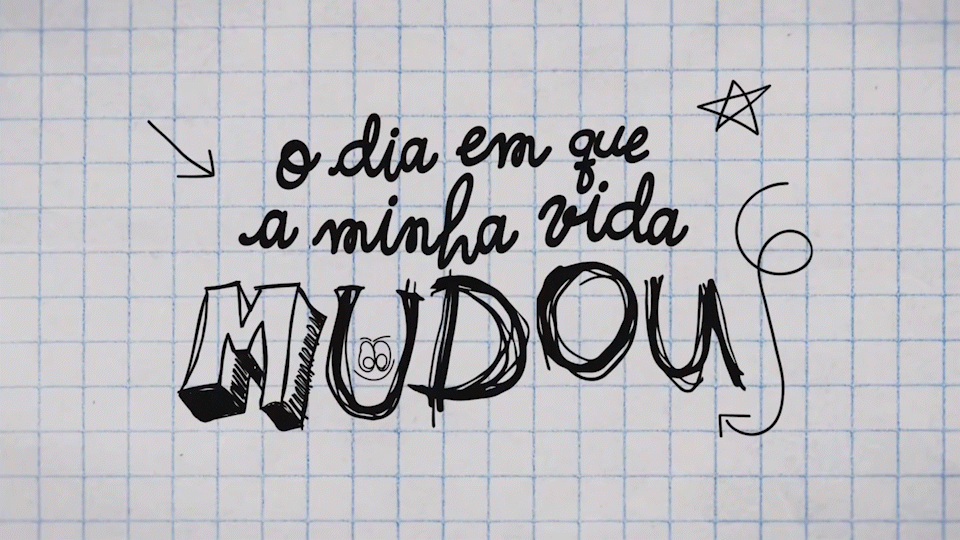 o dia em que
a minha vida
MUDOU